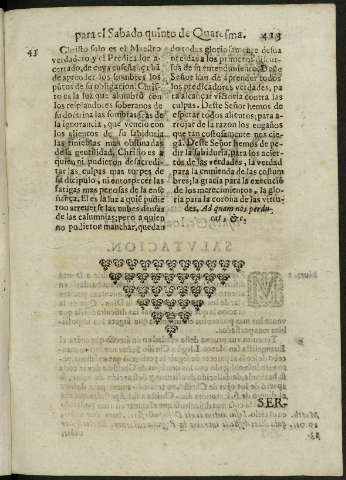 para el Sabado quinto de Quaresma. 423
43
Christo solo es el Maestro
verdadero y el Predicador a-
certado, de cuya enseñança há
de aprender los hombres los
puntos de su obligacion. Chris-
to es la luz que alumbrò con
los resplandores soberanos de
su doctrina las sombras feas de
la ignorancia, que venciò con
los alientos de su sabiduria
las tinieblas mas obstinadas
de la gentilidad. Christo es a
quien ni pudieron desacredi-
tar las culpas mas torpes de
su dicipulo, ni entorpecer las
fatigas mas penosas de la ense-
ñança. El es la luz a quiẽ pudie-
ron atreverse las nubes densas
de las calumnias; pero a quien
no pudieron manchar, quedan
do todas gloriosamente desva-
necidas a los primeros discur-
sos de su entendimiento. Deste
Señor han de aprender todos
los predicadores verdades, pa
ra alcançar victoria contra las
culpas. Deste Señor hemos de
esperar todos alientos; para a-
rrojar de la razon los engaños
que tan costosamente nos cie-
gã. Deste Señor hemos de pe-
dir la sabiduria, para los acier-
tos de las verdades, la verdad
para la enmienda de las costum
bres; la gracia para la execució
de los merecimientos, la glo-
ria para la corona de las virtu-
des, Ad quam nos perdu-
cat &c.
SER-